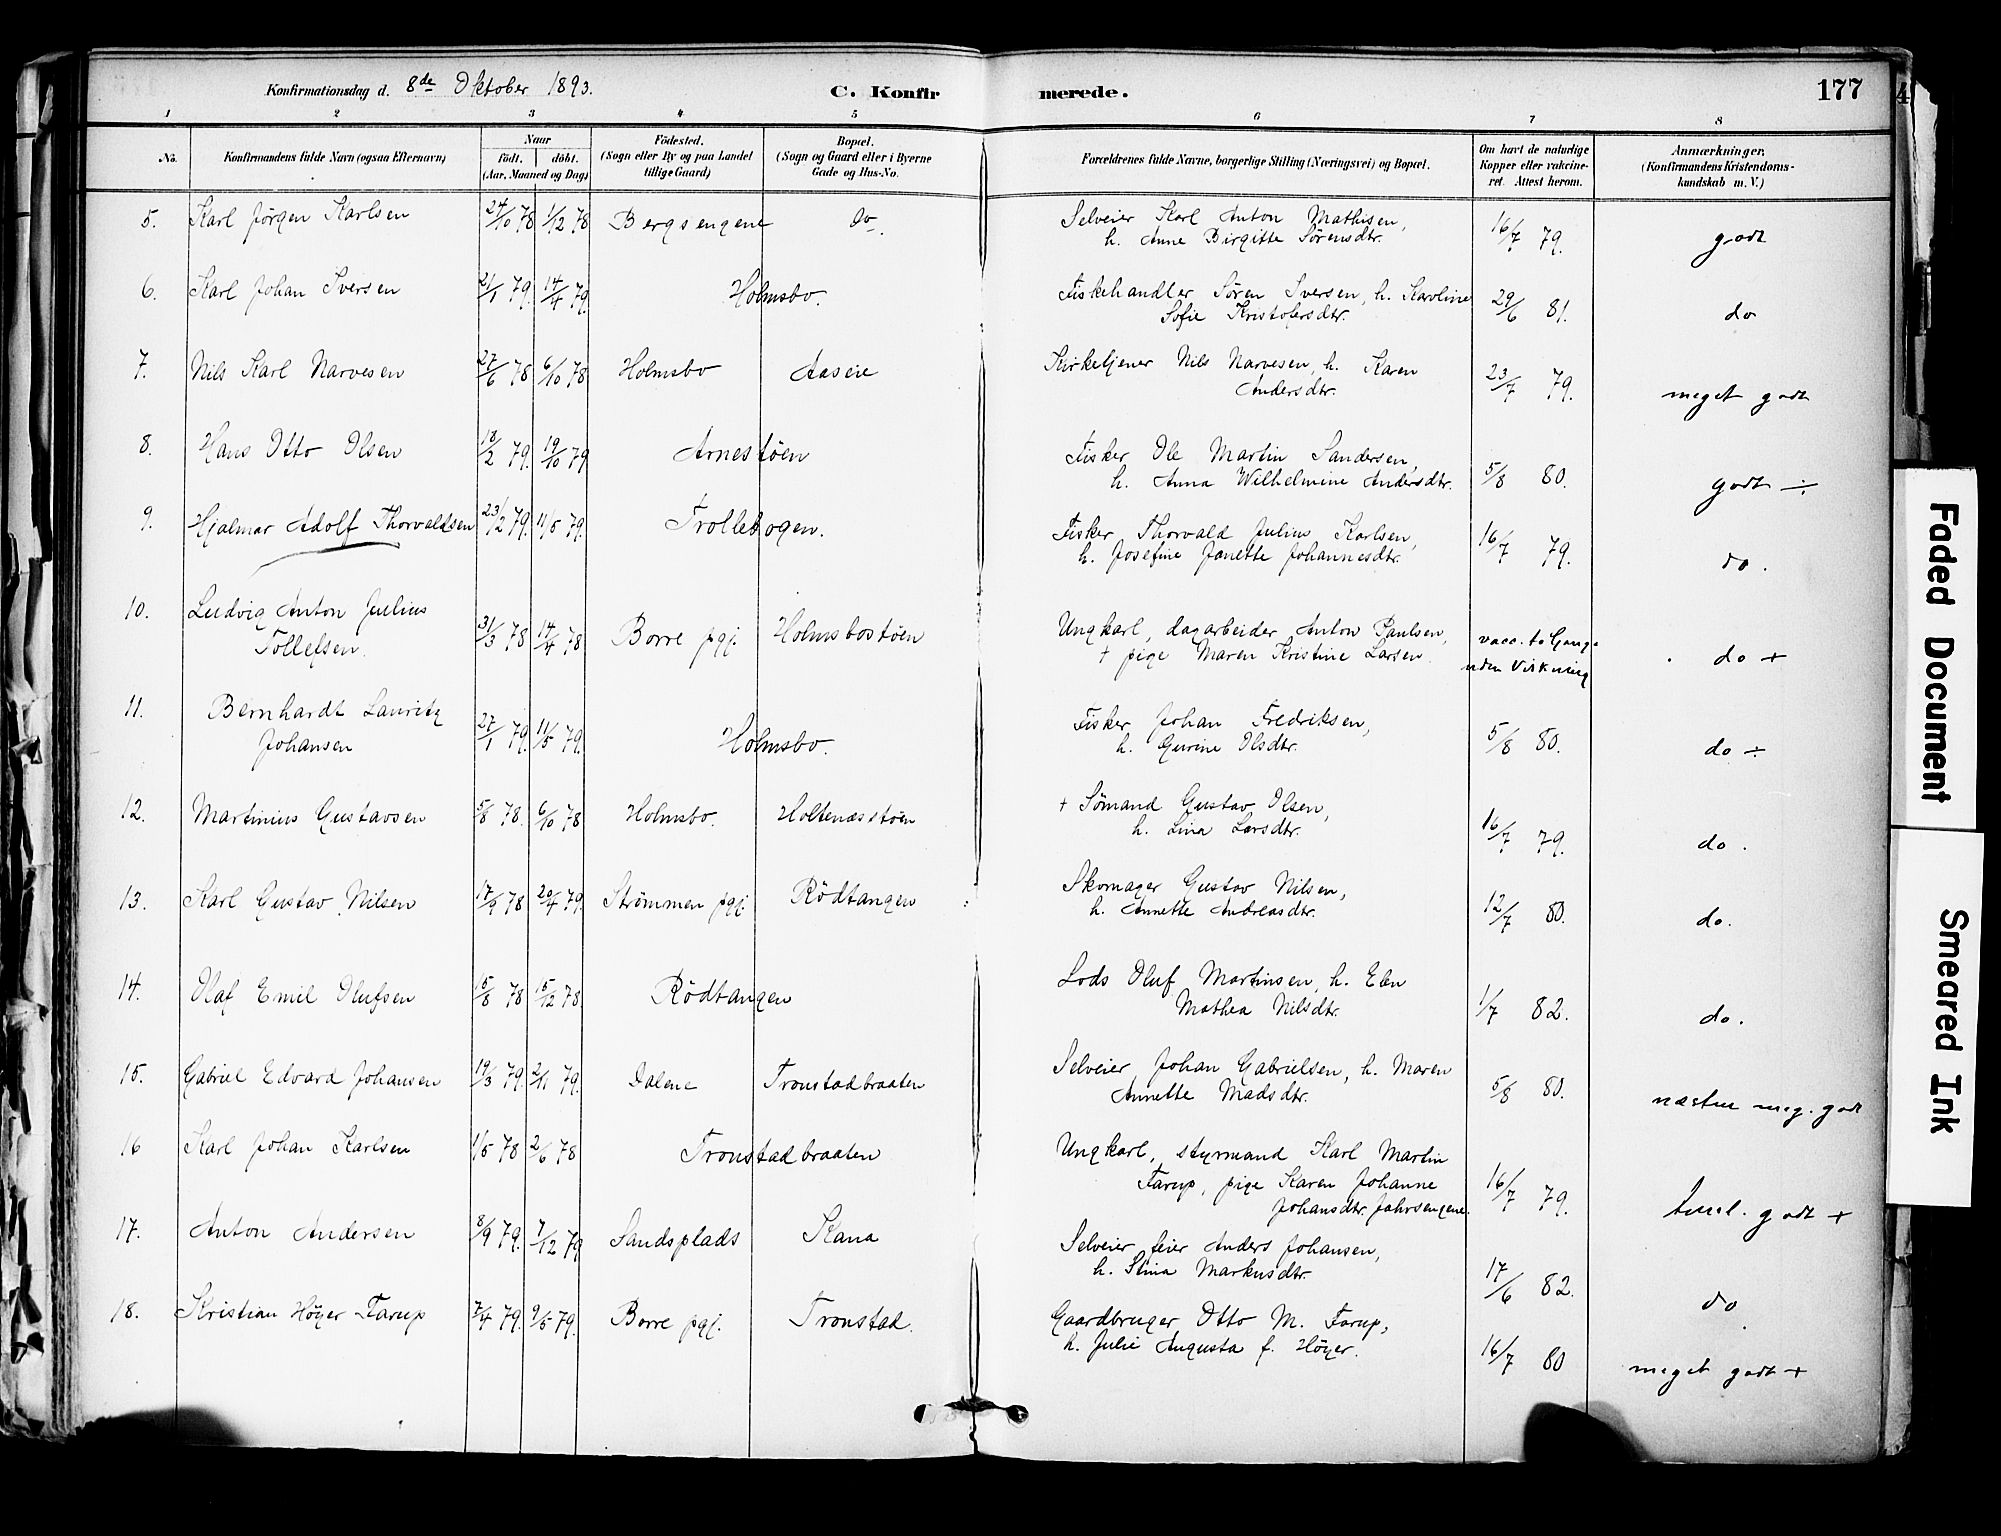 Konfirmationsdag d. 8de Oktober 1893.
C. Konfirmerede.
177
1 2 3 4 5 6 7 8
No. Konfirmandens fulde Navn (ogsaa Efternavn) Naar født. døbt. (Aar, Maaned og Dag) Fødested. (Sogn eller By og paa Landet tillige Gaard) Bopæl. (Sogn og Gaard eller i Byerne Gade og Hus-No. Forældrenes fulde Navne, borgerlige Stilling (Næringsvei) og Bopæl. Om havt de naturlige Kopper eller vakcineret. Attest herom. Anmærkninger. (Konfirmandens Kristendomskundskab m. V.)
5. Karl Jørgen Karlsen 24/10 78 1/12 78 Bergsengene do. Selveier Karl Anton Mathisen, 16/7 79. godt
h. Anne Birgitte Sørensdtr.
6. Karl Johan Iversen 21/1 79. 14/4 79. Holmsbo. Fiskehandler Søren Iversen, h. Karoline 29/6 81. do
Sofie Kristofersdtr.
7. Nils Karl Narvesen 27/6 78 6/10 78 Holmsbo Aaseie Kirketjener Nils Narvesen, h. Karen 23/7 79. meget godt
Andersdtr.
8. Hans Otto Olsen 18/2 79. 19/10 79 Arnestøen Fisker Ole Martin Sandersen, 5/8 80. godt ÷
h. Anna Wilhelmine Andersdtr.
9. Hjalmar Adolf Thorvaldsen 23/2 79. 11/5 79. Trollebogen. Fisker Thorvald Julius Karlsen, 16/7 79. do.
h. Josefine Janette Johannesdtr.
10. Ludvig Anton Julius
Tollefsen. 31/3 78 14/4 78 Borre pgj. Holmsbostøen Ungkarl, dagarbeider Anton Paulsen, vacc. to Gange
+ pige Maren Kristine Larsen. uden Virkning do +
11. Bernhardt Lauritz
Johansen 27/1 79. 11/5 79. Holmsbo. Fisker Johan Fredriksen, 5/8 80. do ÷
h. Gurine Olsdtr.
12. Martinius Gustavsen 5/8 78. 6/10 78 Holmsbo. Holtenæsstøen + Sømand Gustav Olsen, 16/7 79. do.
h. Lina Larsdtr.
13. Karl Gustav Nilsen 17/9 78 20/4 79. Strømmen pgj. Rødtangen Skomager Gustav Nilsen, 12/7 80. do.
h. Annette Andreasdtr.
14. Olaf Emil Olufsen 15/8 78 15/12 78 Rødtangen Lods Oluf Martinsen, h. Elen 1/7 82. do.
Mathea Nilsdtr.
15. Gabriel Edvard Johansen 19/3 79. 2/11 79. Dalene Tronstadbraaten Selveier Johan Gabrielsen, h. Maren 5/8 80. næsten meg. godt
Annette Madsdtr.
16 Karl Johan Karlsen 1/5 78 2/6 78 Tronstadbraaten Ungkarl, styrmand Karl Martin 16/7 79. temel. godt +
Farup, pige Karen Johanne
Johansdtr. Jahrsengene.
17. Anton Andersen 8/9 79. 7/12 79 Sandsplads Kana Selveier feier Anders Johansen, 17/6 82. do
h. Stina Markusdtr.
18. Kristian Höyer Farup 7/4 79. 9/5 79. Borre pgj. Tronstad. Gaardbruger Otto M. Farup, 16/7 80 meget godt +
h. Julie Augusta f. Höyer.
Faded Document
Smeared Ink